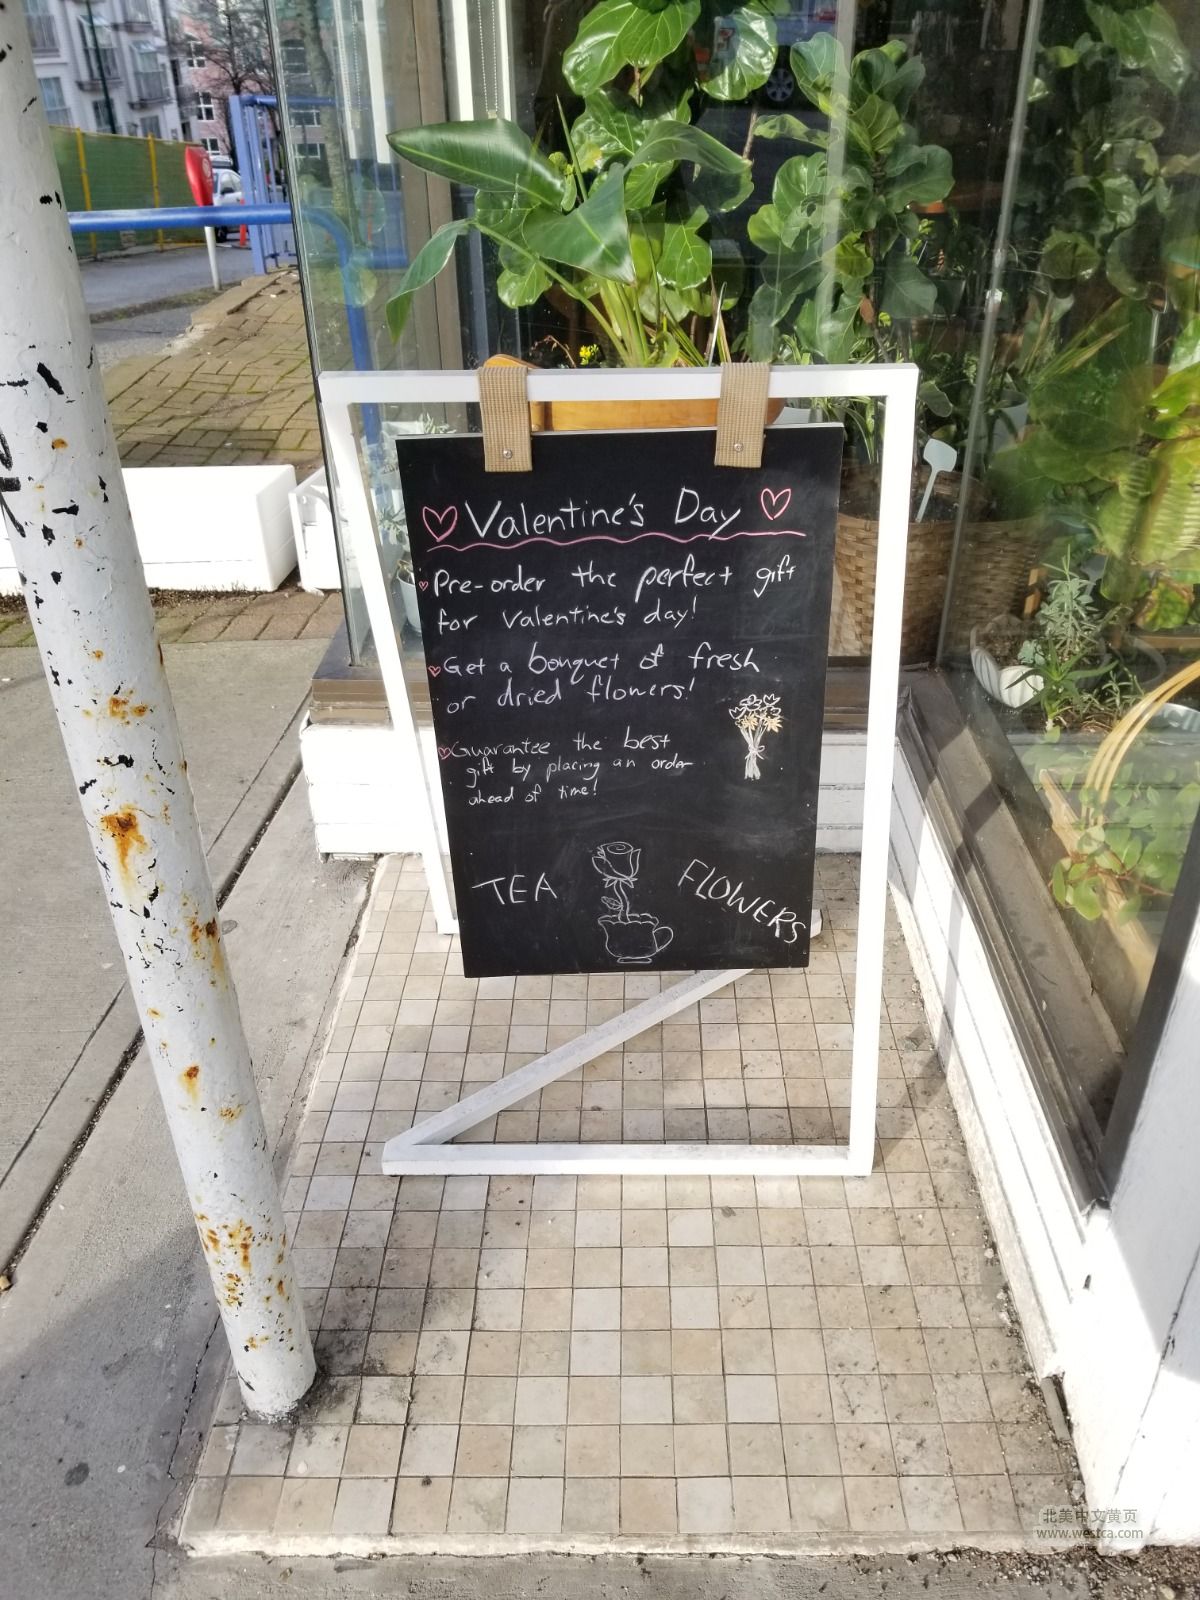 Valentine's Day
Pre-order the perfect gift
for valentine's day!
Get a bouquet of fresh
or dried flowers!
Guarantee the best
gift by placing an order
ahead of time!
TEA
FLOWERS
北美中文黄页
www.westca.com